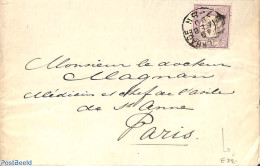 Monsieur le docteur
Magnan
Médecin et chef de l'asile
de Ste Anne
Paris.
PostBeeld